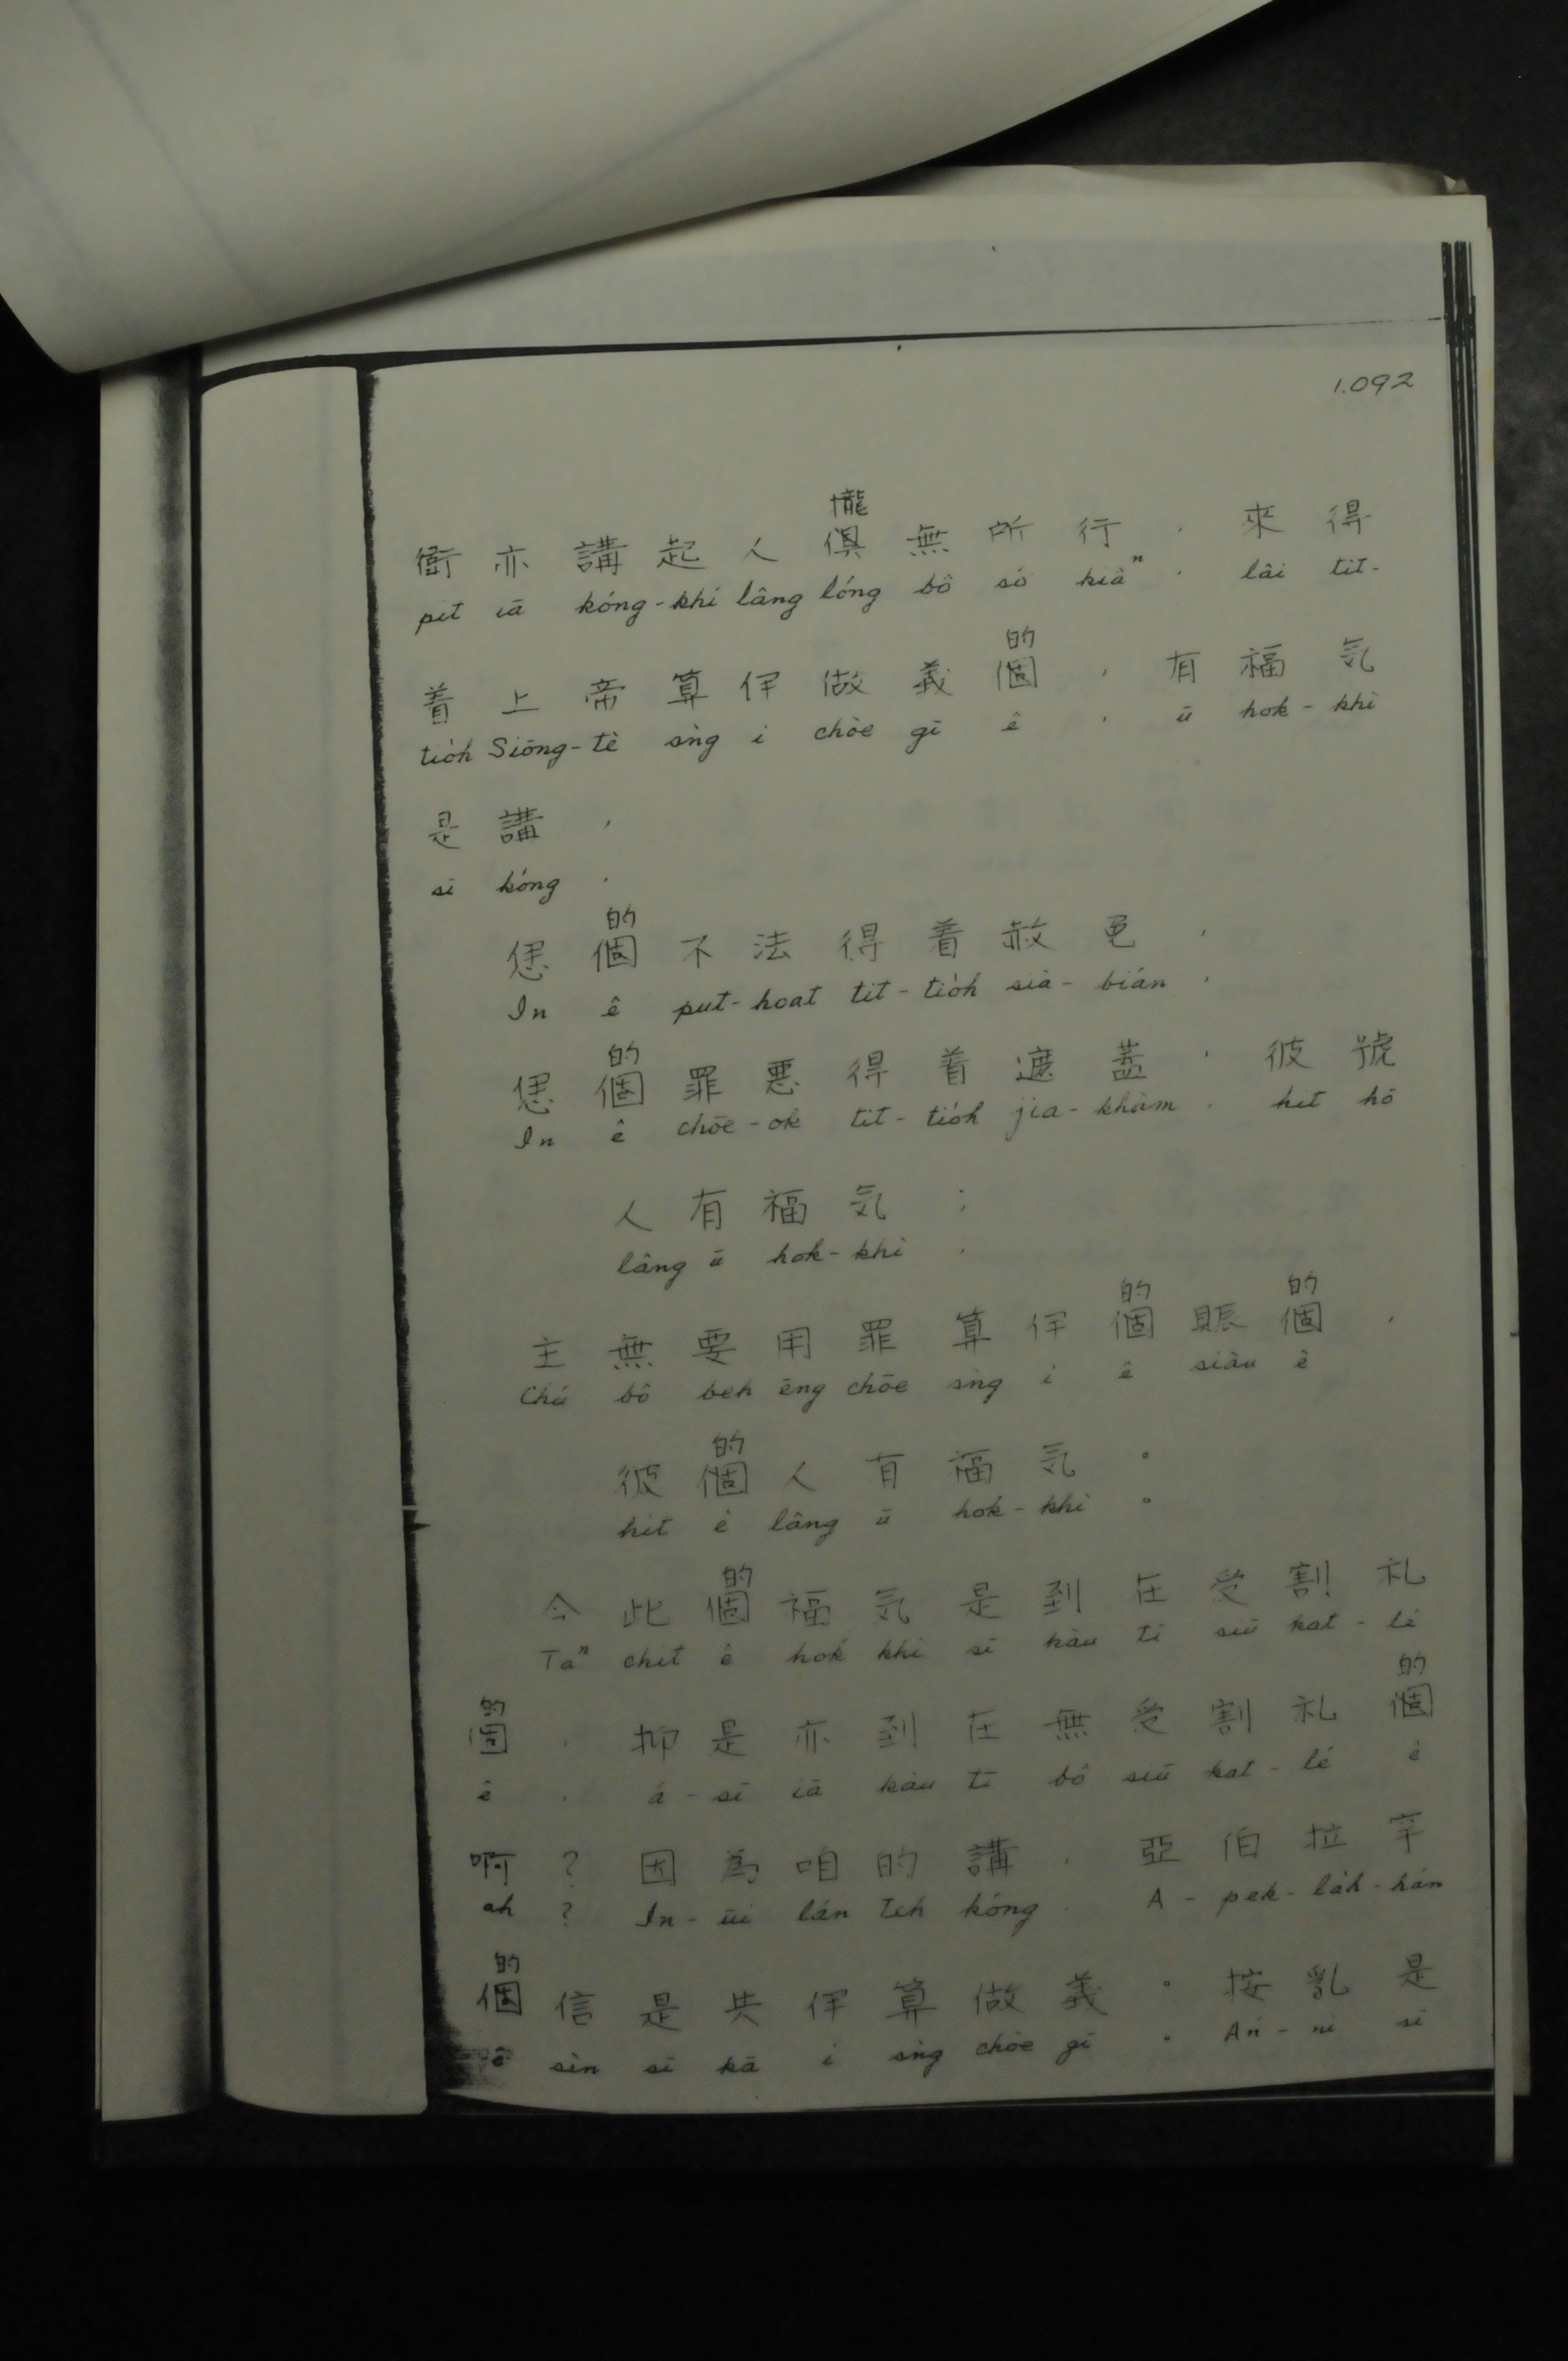 1.092
攏
衙亦講起人俱無所行，來得
pit iā kóng-khí lâng lóng bô só kiâⁿ, lâi tit-
的
着上帝算伊做義個，有福気
tio̍h Siōng-tè sǹg i chòe gī ê, ū hok-khì
是講，
sī kóng,
的
個不法得着赦免，
In ê put-hoat tit-tio̍h sià-bián,
的
個罪惡得着遮蓋，彼號
In ê chōe-ok tit-tio̍h jia-khàm, hit hō
人有福気；
lâng ū hok-khì;
的 的
主無要用罪算伊個賬個，
Chú bô beh ēng chōe sǹg i ê siàu ê
的
彼個人有福気。
hit ê lâng ū hok-khì。
的
今此個福気是到在受割礼
Taⁿ chit ê hok khì sī kàu tī siū kat-lé
的 的
個，抑是亦到在無受割礼個
ê, á-sī iā kàu tī bô siū kat-lé ê
啊？因為咱的講，亞伯拉罕
ah? In-ūi lán teh kóng, A-pek-la̍h-hán
的
個信是共伊算做義。按乱是
ê sìn sī kā i sǹg chòe gī。An-ni sī